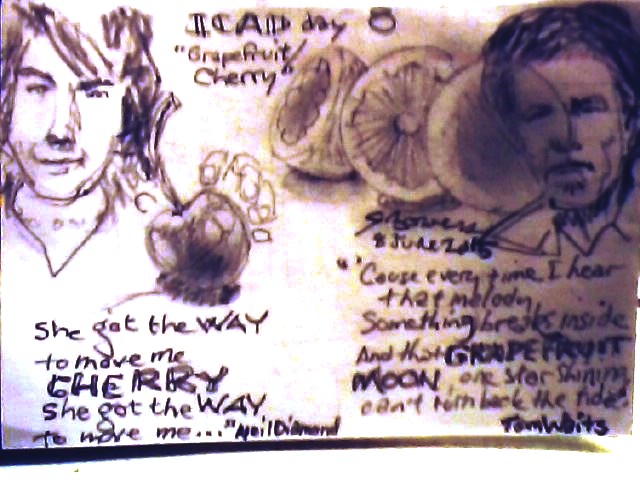 ICAD day 8
"Grapefruit/
Cherry"
8 JUNE 2015
She got the WAY
to move me
CHERRY
She got the WAY
to move me..." Neil Diamond
"'Cause every time I hear
that melody
Something breaks inside
And that GRAPEFRUIT
MOON, one star shining
can't turn back the tide"
Tom Waits